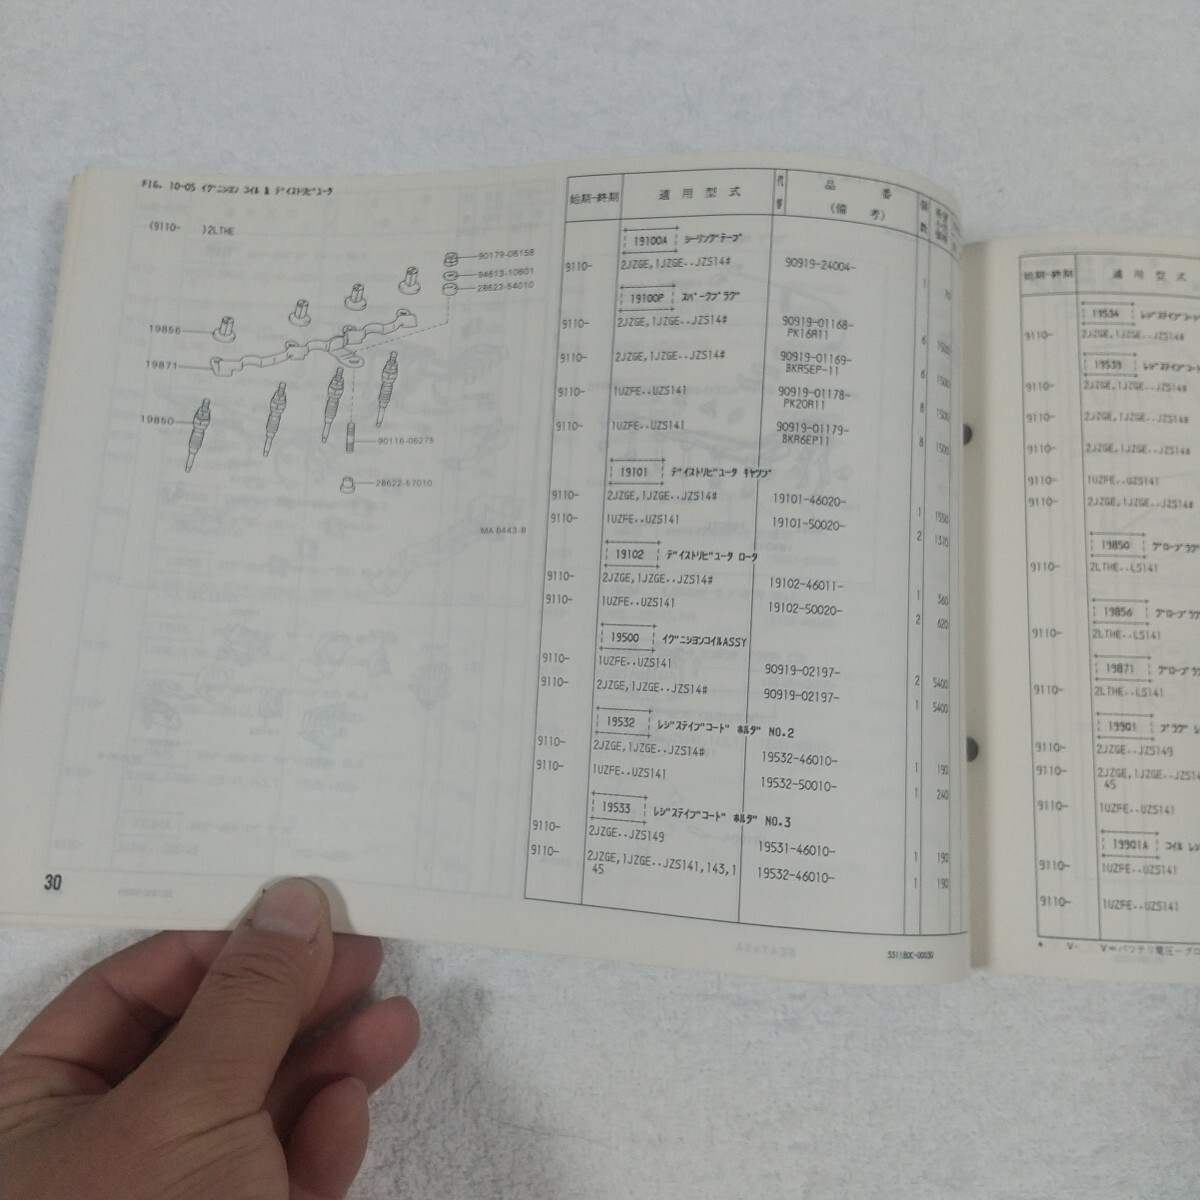 FIG. 10-05 イグニション コイル & デイストリビユータ
(9110-    )2LTHE
90179-06158
94613-10601
28623-54010
19856
19871
19850
90116-06275
28622-67010
MA 0443-B
30
始期-終期 適用型式 代替 品番 (備考) 個数
19100A シーリングテープ
9110- 2JZGE,1JZGE..JZS14# 90919-24004- 1
19100P スパークプラグ
9110- 2JZGE,1JZGE..JZS14# 90919-01168- 6 1500
PK16R11
9110- 2JZGE,1JZGE..JZS14# 90919-01169- 6 1500
BKR5EP-11
9110- 1UZFE..UZS141 90919-01178- 8 1500
PK20R11
9110- 1UZFE..UZS141 90919-01179- 8 1500
BKR6EP11
19101 デイストリビユータ キヤツプ
9110- 2JZGE,1JZGE..JZS14# 19101-46020- 1 1550
9110- 1UZFE..UZS141 19101-50020- 2 1370
19102 デイストリビユータ ロータ
9110- 2JZGE,1JZGE..JZS14# 19102-46011- 1 560
9110- 1UZFE..UZS141 19102-50020- 2 620
19500 イグニシヨンコイルASSY
9110- 1UZFE..UZS141 90919-02197- 2 5400
9110- 2JZGE,1JZGE..JZS14# 90919-02197- 1 5400
19532 レジステイブコード ホルダ NO.2
9110- 2JZGE,1JZGE..JZS14# 19532-46010- 1 190
9110- 1UZFE..UZS141 19532-50010- 1 240
19533 レジステイブコード ホルダ NO.3
9110- 2JZGE..JZS149 19531-46010- 1 190
9110- 2JZGE,1JZGE..JZS141,143,1 19532-46010- 1 190
45
551180C-00030
始期-終期 適用型式
19534 レジステイブコード
9110- 2JZGE,1JZGE..JZS14#
19539 レジステイブコード
9110- 2JZGE,1JZGE..JZS14#
9110- 2JZGE,1JZGE..JZS14#
9110- 2JZGE,1JZGE..JZS14#
9110- 1UZFE..UZS141
9110- 2JZGE,1JZGE..JZS14#
19850 グロープラグ
9110- 2LTHE..LS141
19856 グロープラグ
9110- 2LTHE..LS141
19871 グロープラ
9110- 2LTHE..LS141
19901 プラグ レ
9110- 2JZGE..JZS149
9110- 2JZGE,1JZGE..JZS14
45
9110- 1UZFE..UZS141
19901A コイル レジ
9110- 1UZFE..UZS141
9110- 1UZFE..UZS141
* V- V=バツテリ電圧-グロ